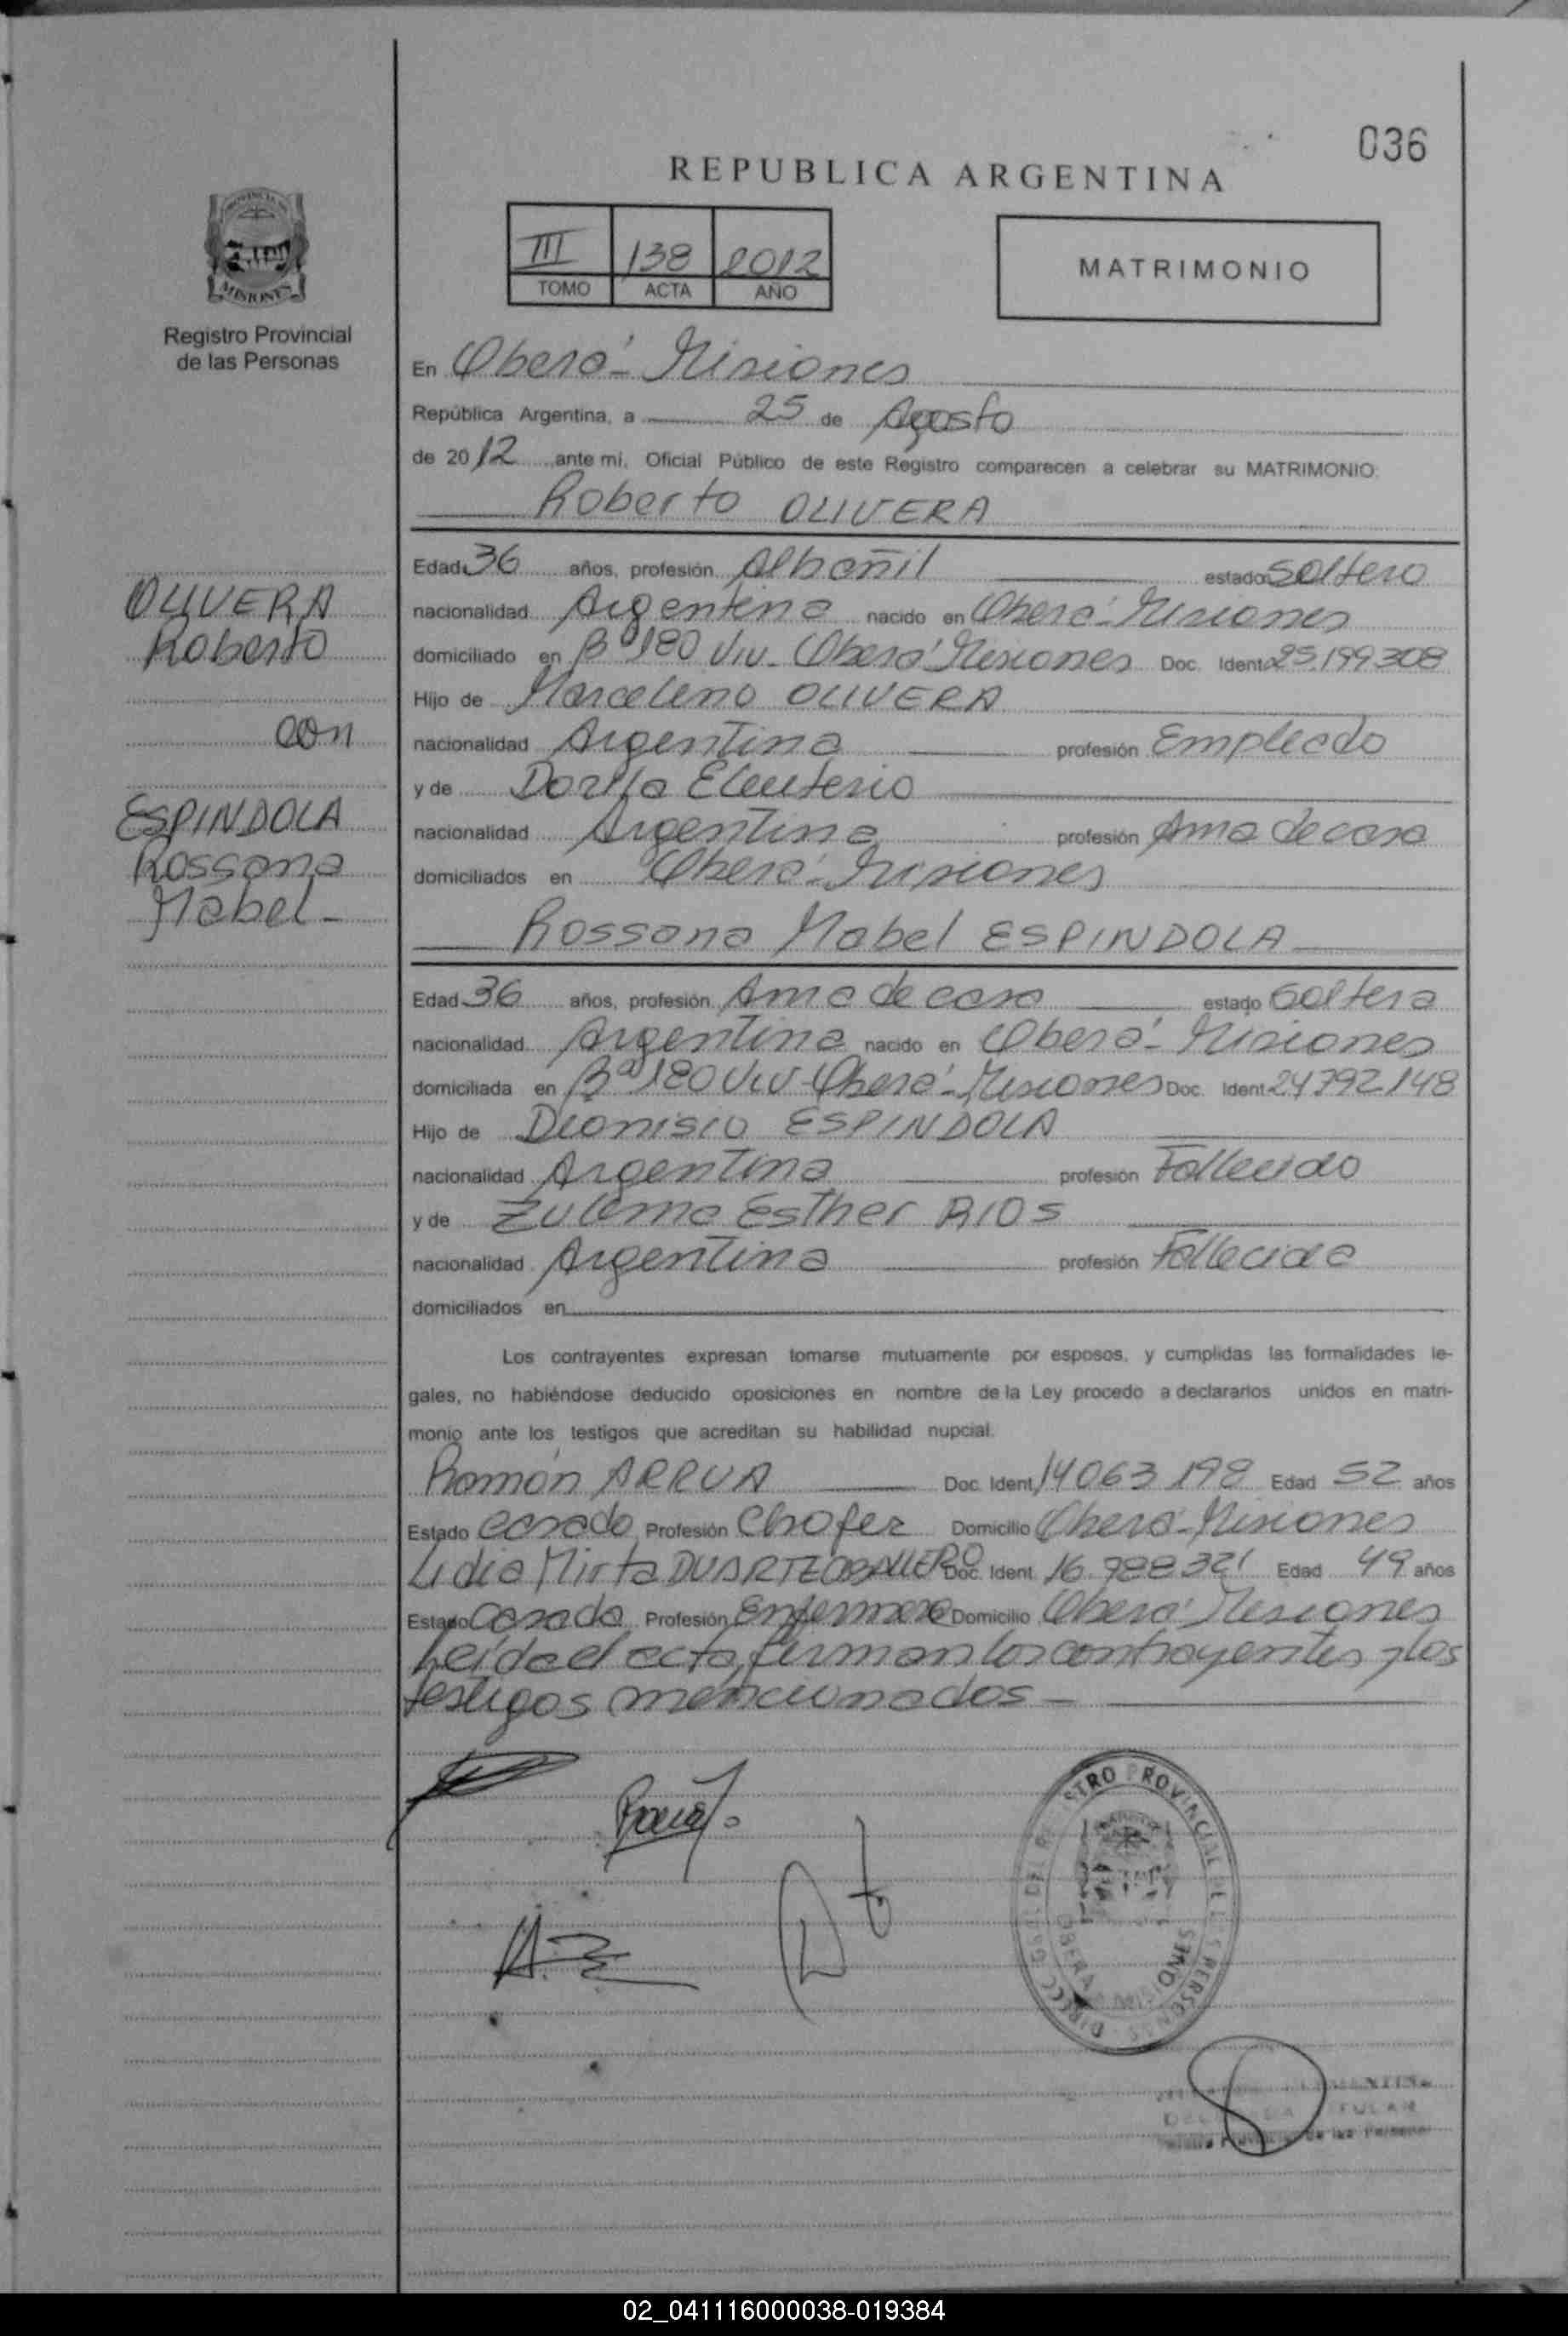 036
REPUBLICA ARGENTINA
III 138 2012
TOMO ACTA AÑO
MATRIMONIO
MISIONES
Registro Provincial
de las Personas
En Oberá - Misiones
República Argentina, a 25 de Agosto
de 2012 ante mi, Oficial Público de este Registro comparecen a celebrar su MATRIMONIO:
Roberto OLIVERA
OLIVERA
Roberto
con
ESPINDOLA
Rossana
Mabel -
Edad 36 años, profesión Albañil estado Soltero
nacionalidad Argentina nacido en Oberá - Misiones
domiciliado en Bº 180 Viv - Oberá Misiones Doc. Ident. 25.199.308
Hijo de Marcelino OLIVERA
nacionalidad Argentina profesión Empleado
y de Eleuterio
nacionalidad Argentina profesión Ama de casa
domiciliados en Oberá - Misiones
Rossana Mabel ESPINDOLA
Edad 36 años, profesión Ama de casa estado Soltera
nacionalidad Argentina nacido en Oberá - Misiones
domiciliada en Bº 180 Viv - Oberá - Misiones Doc. Ident. 24792148
Hijo de Dionisio ESPINDOLA
nacionalidad Argentina profesión Fallecido
y de Zulema Esther RIOS
nacionalidad Argentina profesión Fallecida
domiciliados en
Los contrayentes expresan tomarse mutuamente por esposos, y cumplidas las formalidades le-
gales, no habiéndose deducido oposiciones en nombre de la Ley procedo a declararlos unidos en matri-
monio ante los testigos que acreditan su habilidad nupcial.
Ramón ARRUA Doc. Ident. 14063.198 Edad 52 años
Estado casado Profesión Chofer Domicilio Oberá - Misiones
Lidia Mirta DUARTE CABALLERO Doc. Ident. Edad 49 años
Estado Casada Profesión Enfermera Domicilio Oberá Misiones
Leída el acta, firman los contrayentes y los
testigos mencionados -
REGISTRO PROVINCIAL DE LAS PERSONAS
OBERA MISIONES
02_041116000038-019384